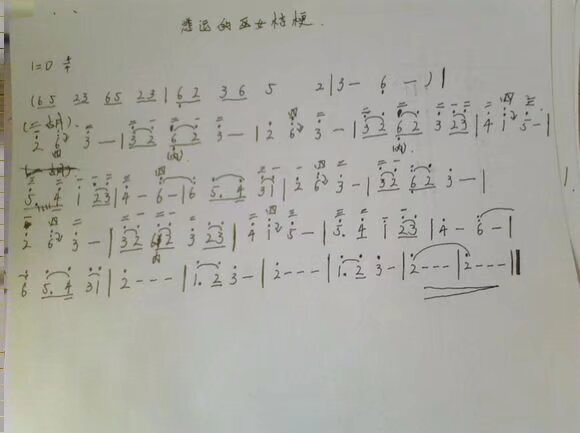 悲运的巫女桔梗.
1=D 4/4
(65 23 65 23 | 62 36 5 2 | 3 - 6 - ) |
2 6 3 - | 32 62 3 - | 2 6 3 - | 32 62 3 23 | 4 1 5 - |
5. 4 1 23 | 4 - 6 - | 6 5. 4 31 | 2 6 3 - | 32 62 3 - |
2 6 3 - | 32 62 3 23 | 4 1 5 - | 5. 4 1 23 | 4 - 6 - |
6 5. 4 31 | 2 - - - | 1. 2 3 - | 2 - - - | 1. 2 3 - | 2 - - - | 2 - - - ||